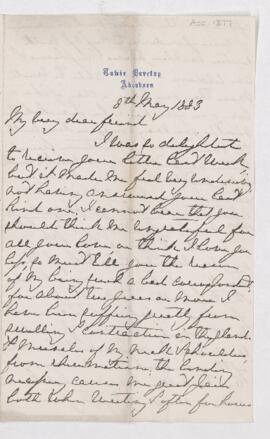 Towie Barclay
Aberdeen
8th May 1883
My very dear friend
I was so delighted
to receive your letter last week,
but it made me feel very
not having answered your last
kind one, I cannot bear that you
should think me ungrateful for
all your love or think I love you
so I must tell you the reason
of my being such a bad correspondent
for about two years or more I
have been suffering greatly from
swelling & contraction in my hand
& muscles of my neck & shoulders
from rheumatism, the bending
causes me great pain
both when writing & often for hours